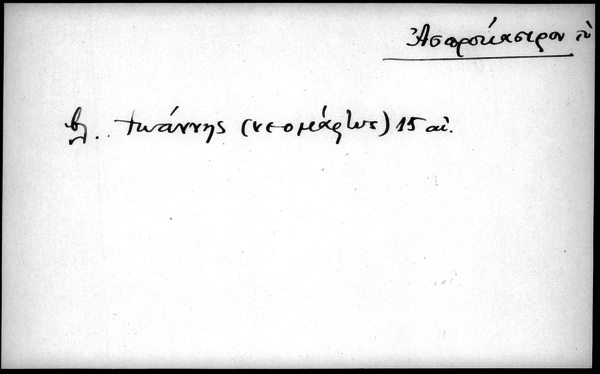 Ἀσπρόκαστρον τὸ
βλ. Ἰωάννης (νεομάρτυς) 15 αἰ.